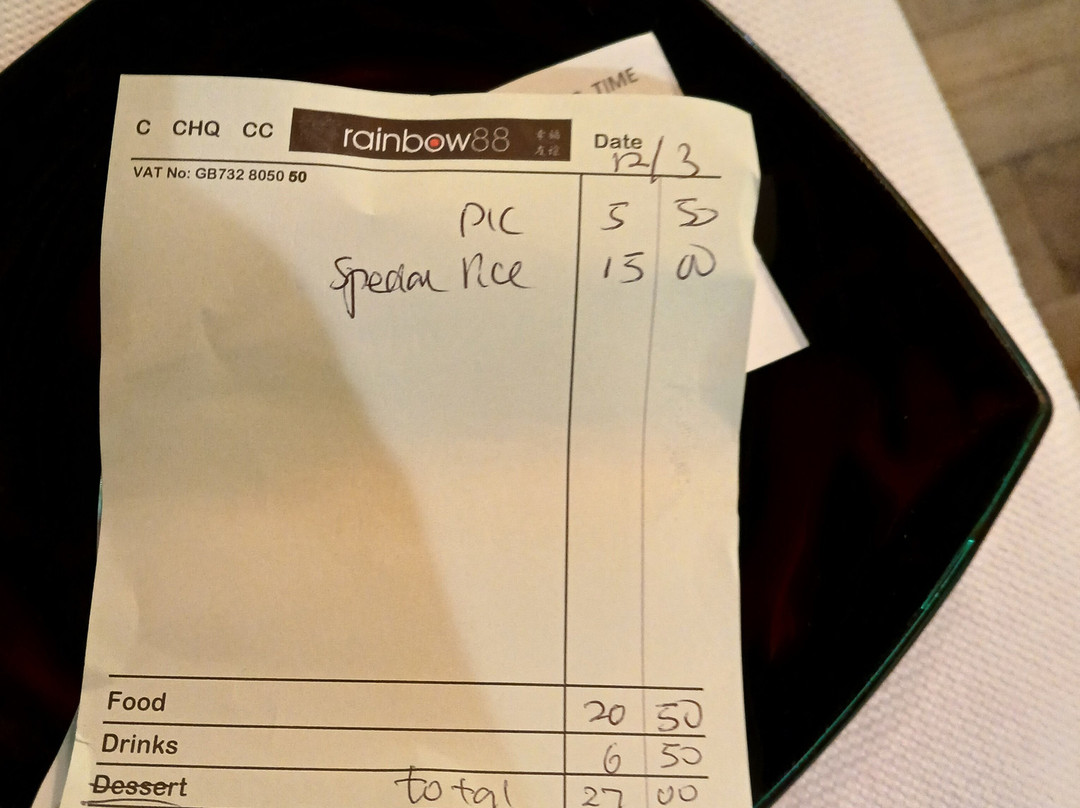 TIME
C CHQ CC rainbow88 Date
12/3
VAT No: GB732 8050 50
PIC 5 50
Special Rice 15 00
Food 20 50
Drinks 6 50
Dessert total 27 00